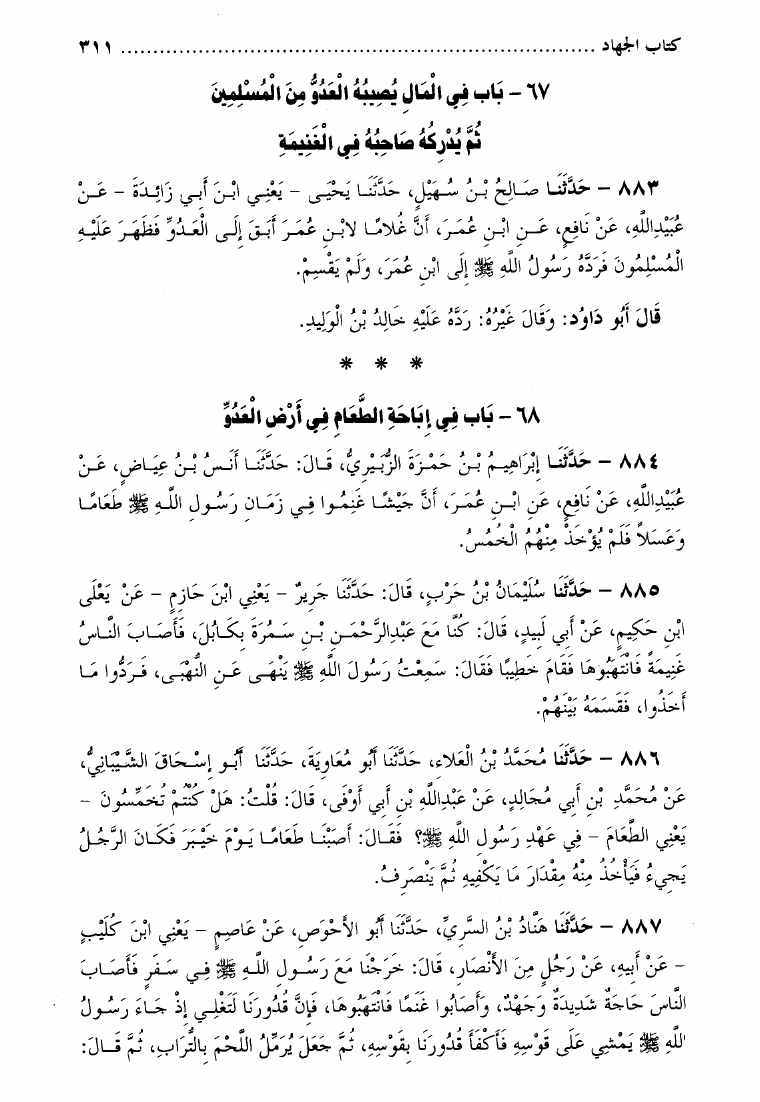 كتاب الجهاد ........................................................................ ٣١١
٦٧ - بَاب فِي الْمَالِ يُصِيبُهُ الْعَدُوُّ مِنَ الْمُسْلِمِينَ
ثُمَّ يُدْرِكُهُ صَاحِبُهُ فِي الْغَنِيمَةِ
٨٨٣ - حَدَّثَنَا صَالِحُ بْنُ سُهَيْلٍ، حَدَّثَنَا يَحْيَى - يَعْنِي ابْنَ أَبِي زَائِدَةَ - عَنْ
عُبَيْدِاللَّهِ، عَنْ نَافِعٍ، عَنِ ابْنِ عُمَرَ، أَنَّ غُلَامًا لابْنِ عُمَرَ أَبَقَ إِلَى الْعَدُوِّ فَظَهَرَ عَلَيْهِ
الْمُسْلِمُونَ فَرَدَّهُ رَسُولُ اللَّهِ ﷺ إِلَى ابْنِ عُمَرَ، وَلَمْ يَقْسِمْ.
قَالَ أَبُو دَاوُد: وَقَالَ غَيْرُهُ: رَدَّهُ عَلَيْهِ خَالِدُ بْنُ الْوَلِيدِ.
* * *
٦٨ - بَاب فِي إِبَاحَةِ الطَّعَامِ فِي أَرْضِ الْعَدُوِّ
٨٨٤ - حَدَّثَنَا إِبْرَاهِيمُ بْنُ حَمْزَةَ الزُّبَيْرِيُّ، قَالَ: حَدَّثَنَا أَنَسُ بْنُ عِيَاضٍ، عَنْ
عُبَيْدِاللَّهِ، عَنْ نَافِعٍ، عَنِ ابْنِ عُمَرَ، أَنَّ جَيْشًا غَنِمُوا فِي زَمَانِ رَسُولِ اللَّهِ ﷺ طَعَامًا
وَعَسَلاً فَلَمْ يُؤْخَذْ مِنْهُمُ الْخُمُسُ.
٨٨٥ - حَدَّثَنَا سُلَيْمَانُ بْنُ حَرْبٍ، قَالَ: حَدَّثَنَا جَرِيرٌ - يَعْنِي ابْنَ حَازِمٍ - عَنْ يَعْلَى
ابْنِ حَكِيمٍ، عَنْ أَبِي لَبِيدٍ، قَالَ: كُنَّا مَعَ عَبْدِالرَّحْمَنِ بْنِ سَمُرَةَ بِكَابُلَ، فَأَصَابَ النَّاسُ
غَنِيمَةً فَانْتَهَبُوهَا فَقَامَ خَطِيبًا فَقَالَ: سَمِعْتُ رَسُولَ اللَّهِ ﷺ يَنْهَى عَنِ النُّهْبَى، فَرَدُّوا مَا
أَخَذُوا، فَقَسَمَهُ بَيْنَهُمْ.
٨٨٦ - حَدَّثَنَا مُحَمَّدُ بْنُ الْعَلاءِ، حَدَّثَنَا أَبُو مُعَاوِيَةَ، حَدَّثَنَا أَبُو إِسْحَاقَ الشَّيْبَانِيُّ،
عَنْ مُحَمَّدِ بْنِ أَبِي مُجَالِدٍ، عَنْ عَبْدِاللَّهِ بْنِ أَبِي أَوْفَى، قَالَ: قُلْتُ: هَلْ كُنْتُمْ تُخَمِّسُونَ -
يَعْنِي الطَّعَامَ - فِي عَهْدِ رَسُولِ اللَّهِ ﷺ؟ فَقَالَ: أَصَبْنَا طَعَامًا يَوْمَ خَيْبَرَ فَكَانَ الرَّجُلُ
يَجِيءُ فَيَأْخُذُ مِنْهُ مِقْدَارَ مَا يَكْفِيهِ ثُمَّ يَنْصَرِفُ.
٨٨٧ - حَدَّثَنَا هَنَّادُ بْنُ السَّرِيِّ، حَدَّثَنَا أَبُو الأَحْوَصِ، عَنْ عَاصِمٍ - يَعْنِي ابْنَ كُلَيْبٍ
- عَنْ أَبِيهِ، عَنْ رَجُلٍ مِنَ الأَنْصَارِ، قَالَ: خَرَجْنَا مَعَ رَسُولِ اللَّهِ ﷺ فِي سَفَرٍ فَأَصَابَ
النَّاسَ حَاجَةٌ شَدِيدَةٌ وَجَهْدٌ، وَأَصَابُوا غَنَمًا فَانْتَهَبُوهَا، فَإِنَّ قُدُورَنَا لَتَغْلِي إِذْ جَاءَ رَسُولُ
اللَّهِ ﷺ يَمْشِي عَلَى قَوْسِهِ فَأَكْفَأَ قُدُورَنَا بِقَوْسِهِ، ثُمَّ جَعَلَ يُرَمِّلُ اللَّحْمَ بِالتُّرَابِ، ثُمَّ قَالَ: